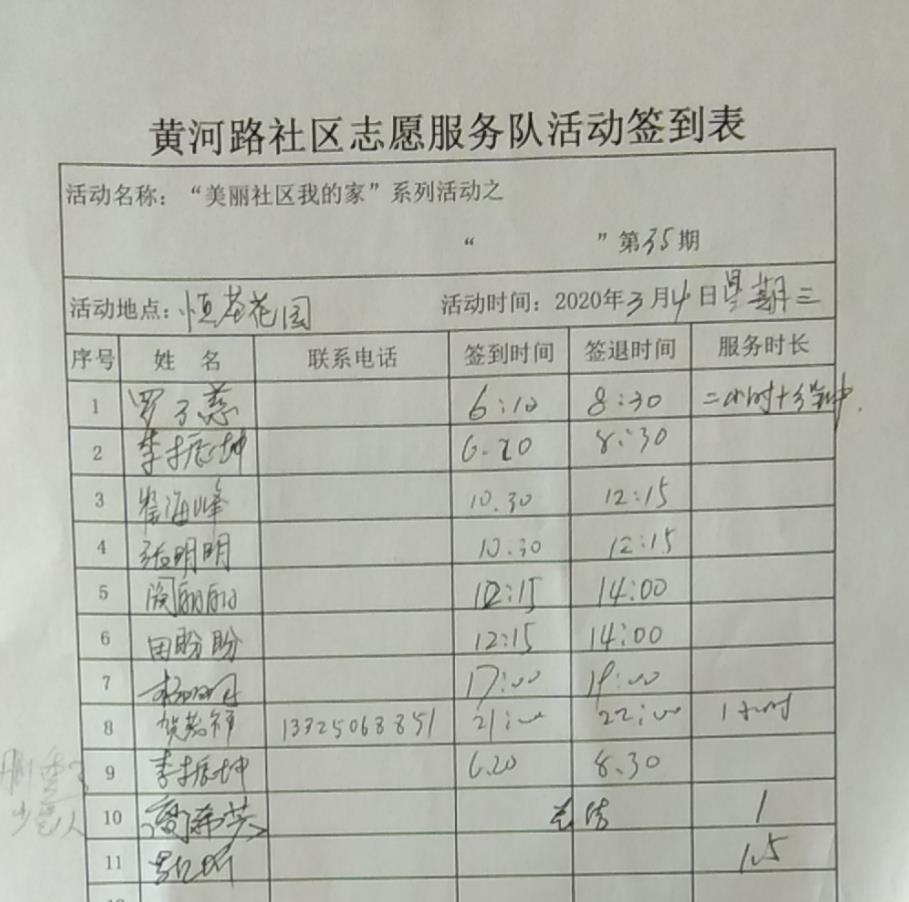 黄河路社区志愿服务队活动签到表
活动名称：“美丽社区我的家”系列活动之
“ ”第35期
活动地点：恒茗花园 活动时间：2020年3月4日星期三
序号 姓名 联系电话 签到时间 签退时间 服务时长
1 罗子慈 6:10 8:30 二小时十分钟.
2 李振坤 6.20 8:30
3 海峰 10.30 12:15
4 张明明 10.30 12:15
5 阎丽丽 12:15 14:00
6 田盼盼 12:15 14:00
7 杨 17:00 19:00
8 贺慧 13325068851 21:00 22:00 1小时
9 李振坤 6.20 8.30
10 总结 1
11 1.5